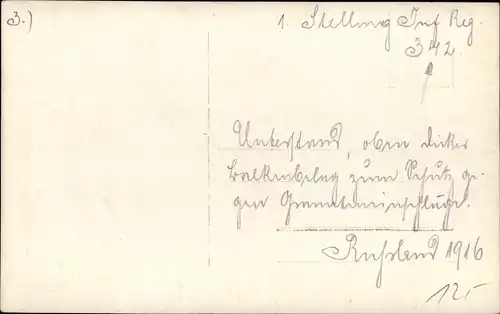 3.)
1. Stellung Inf Reg.
342.
Unterstand, oben dicker
Balkenbelag zum Schutz ge-
gen Granateinschläge.
Russland 1916
12,-